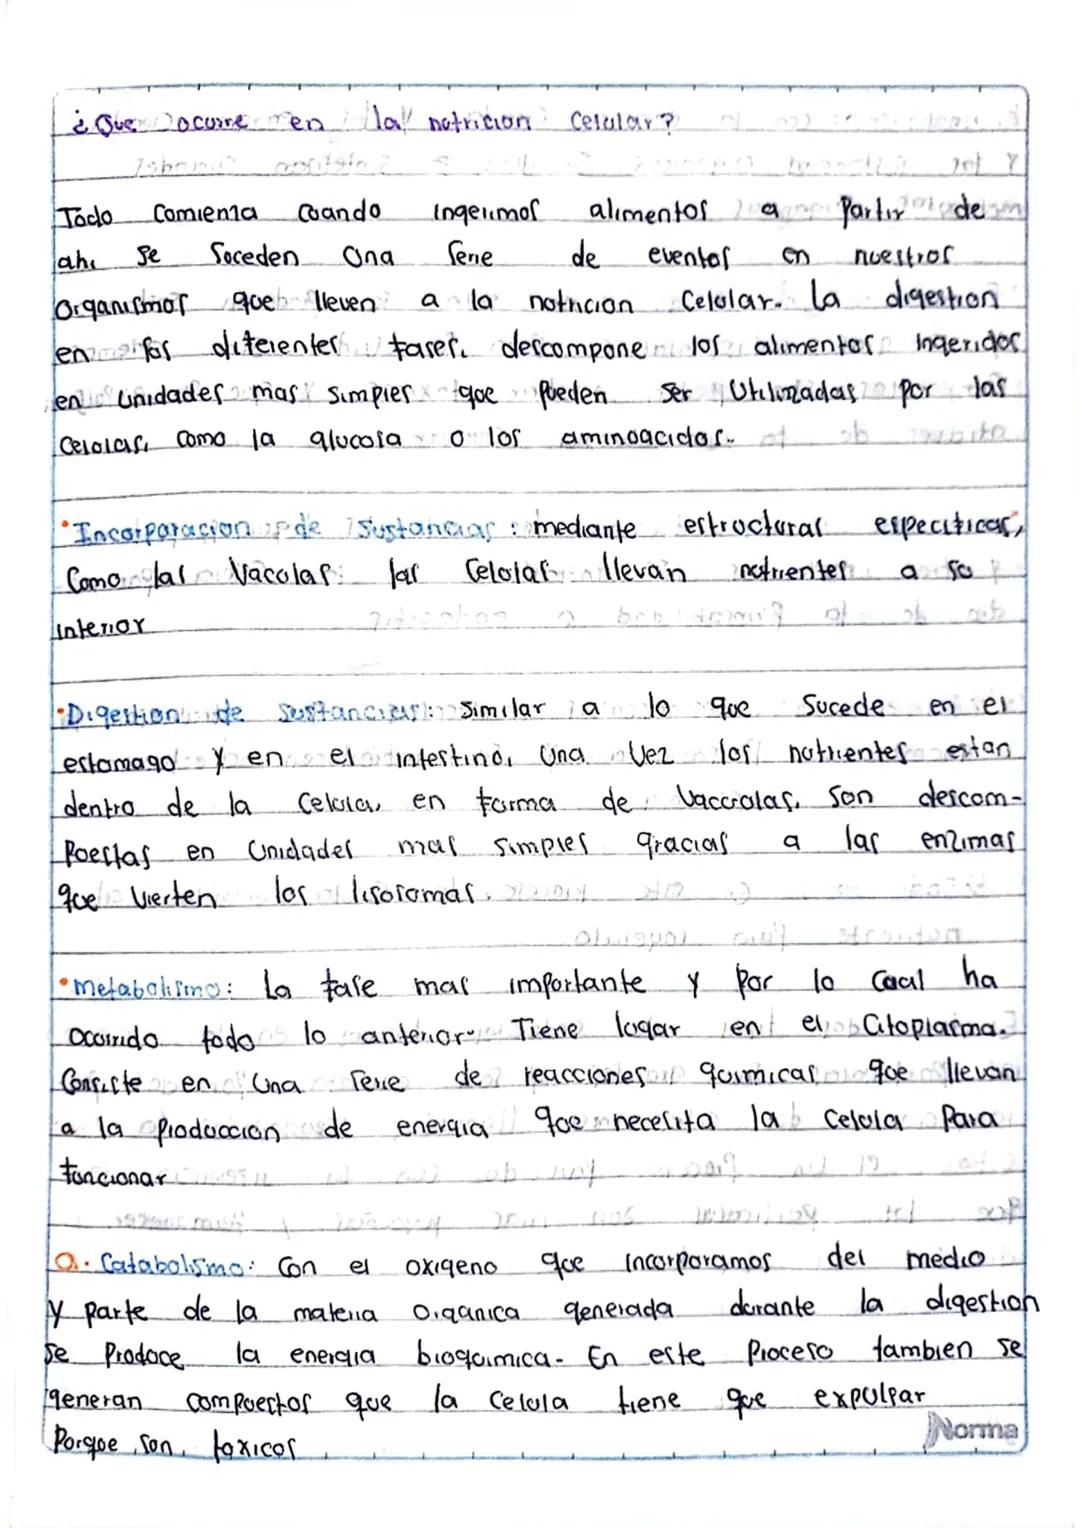 ¿Que ocurre en la nutricion Celular?
Todo Comienza Cuando ingerimos alimentos a Partir de
ahi se Suceden Una Serie de eventos en nuestros
Organismos que lleven a la nutricion Celular. La digestion
en sus diferentes fases, descompone los alimentos ingeridos
en unidades mas simples que Pueden Ser Utilizadas por las
Celulas, Como la glucosa o los aminoacidos.
•Incorporacion de Sustancias: mediante estructuras especificas,
Como las Vacolas las Celulas llevan nutrientes a su
interior
•Digestion de Sustancias: Similar a lo que Sucede en el
estomago y en el intestino, Una Vez los nutrientes estan
dentro de la Celula, en forma de Vacuolas, Son descom-
Puestas en Unidades mas simples gracias a las enzimas
que Vierten los lisosomas.
•Metabolismo: La fase mas importante y Por lo Cual ha
Ocurrido todo lo anterior. Tiene lugar en el Citoplasma.
Consiste en Una Serie de reacciones quimicas que llevan
a la Produccion de energia que necesita la Celula Para
funcionar
a. Catabolismo: Con el oxigeno que incorporamos del medio
y parte de la materia Organica generada durante la digestion
Se Produce la energia bioquimica. En este Proceso tambien se
generan Compuestos que la Celula tiene que expulsar
Porque son toxicos
Norma